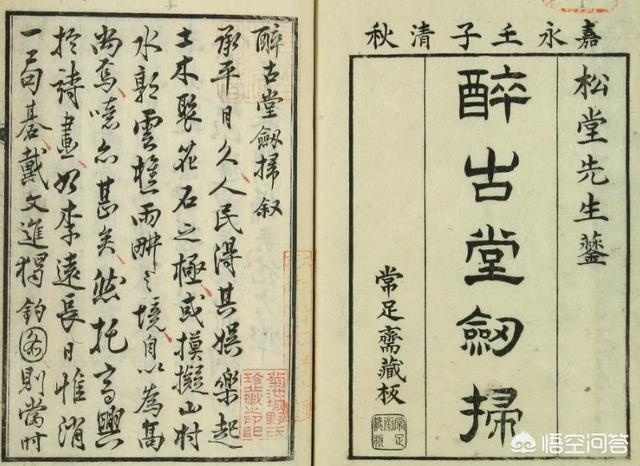 嘉永壬子清秋
松堂先生鑒
醉古堂劔掃
常足齋藏板
醉古堂劔掃叙
承平日久人民得其娯樂起
土木聚花石之極或摸擬山村
水郭雲樵雨畊之境自以為高
尚焉噫亦甚矣然托高興
於詩畫如李遠長日惟消
一局碁戴文進獨釣則當時
悟空问答